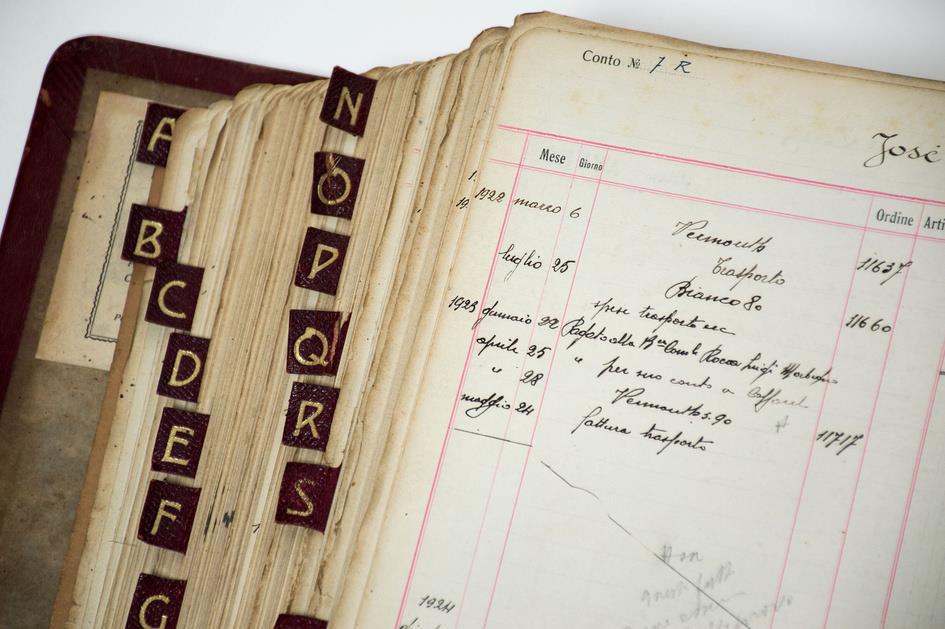 A
B
C
D
E
F
G
N
O
P
Q
R
S
Conto № 7 R
José
Mese Giorno Ordine Arti
1922 marzo 6 Vermouth 11637
Trasporto
luglio 25 Bianco 80 11660
spese trasporto ecc
1923 gennaio 22 Pagato alla Rocca Luigi
aprile 25 " per suo conto a
" 28 Vermouth s. 90
maggio 24 fattura trasporto 11717
1924